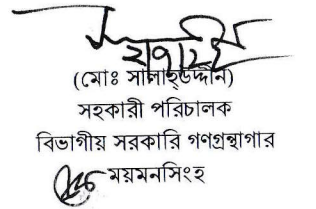 (মোঃ সালাহ্উদ্দীন)
সহকারী পরিচালক
বিভাগীয় সরকারি গণগ্রন্থাগার
ময়মনসিংহ